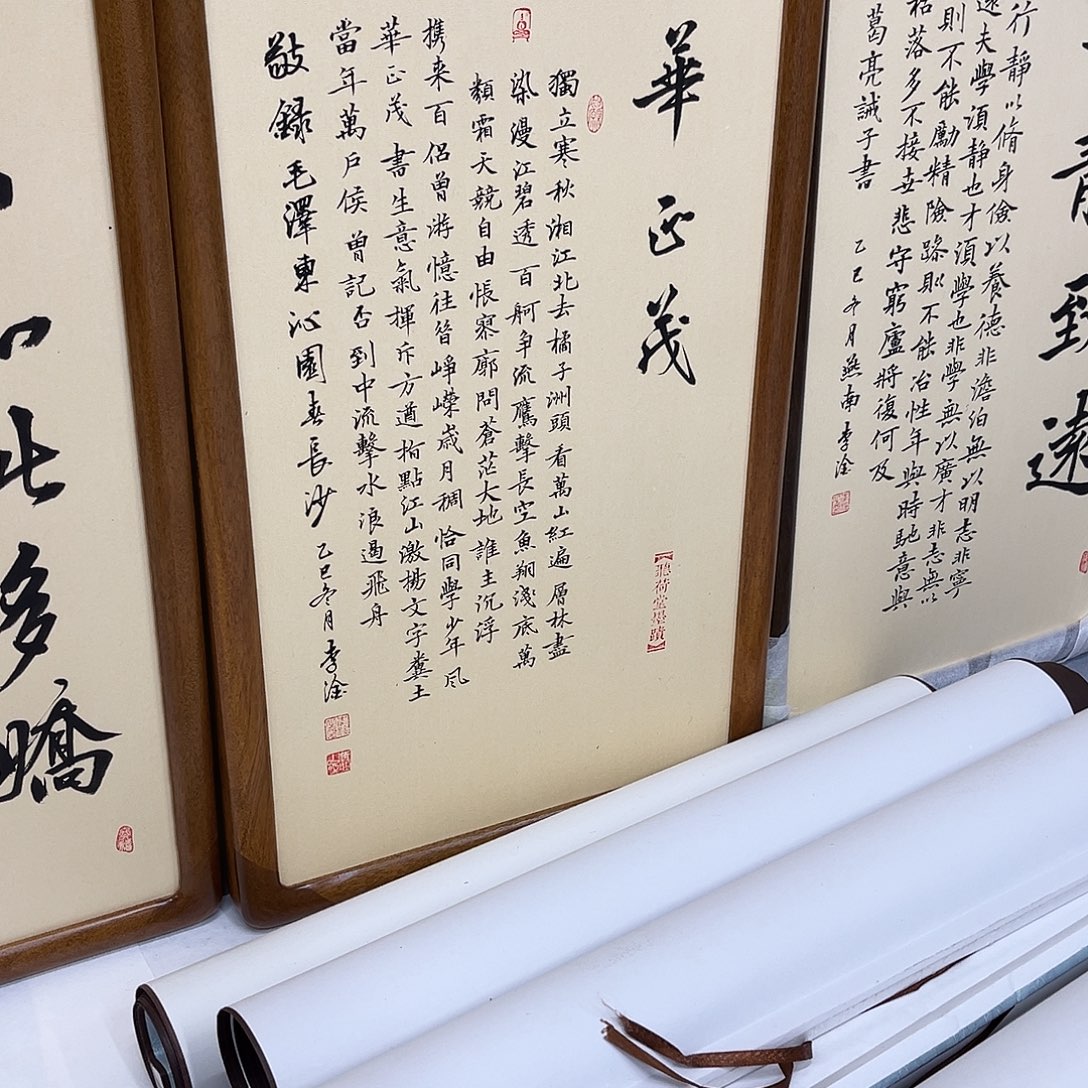 致遠
行靜以脩身儉以養德非澹泊無以明志非寧
遠夫學須靜也才須學也非學無以廣才非志無以
則不能勵精險躁則不能冶性年與時馳意與
枯落多不接世悲守窮廬將復何及
葛亮誡子書 乙巳冬月燕南李淦
華正茂
【聽荷堂墨蹟】
獨立寒秋湘江北去橘子洲頭看萬山紅遍層林盡
染漫江碧透百舸争流鷹擊長空魚翔淺底萬
類霜天競自由悵寥廓問蒼茫大地誰主沉浮
携来百侣曾游憶往昔崢嶸歲月稠恰同學少年風
華正茂書生意氣揮斥方遒指點江山激揚文字糞土
當年萬户侯曾記否到中流擊水浪遏飛舟
敬録毛澤東沁園春長沙 乙巳冬月李淦
如此多嬌